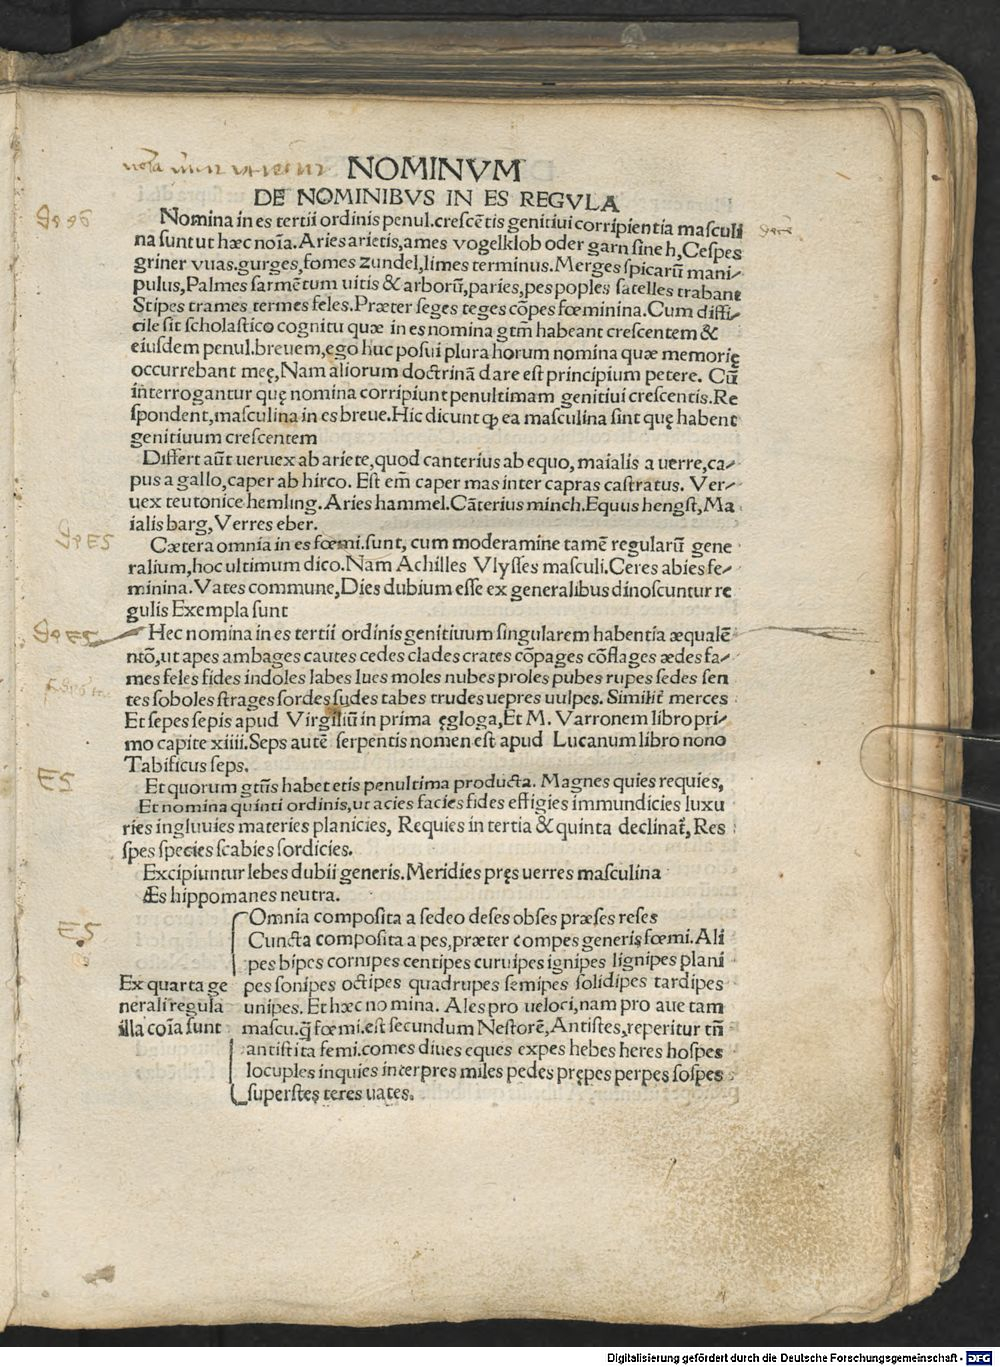 NOMINVM
DE NOMINIBVS IN ES REGVLA
Nomina in es tertii ordinis penul.creſcẽtis genitiui corripientia maſculi
na ſunt ut hæc noĩa. Aries arietis,ames vogelklob oder garn ſine h,Ceſpes
griner vuas.gurges,fomes zundel,limes terminus. Merges ſpicarũ mani⸗
pulus,Palmes ſarmẽtum uitis & arborũ,paries,pes poples ſatelles trabant
Stipes trames termes feles. Præter ſeges teges cõpes fœminina. Cum diffi⸗
cile ſit ſcholaſtico cognitu quæ in es nomina gtm̃ habeant creſcentem &
eiuſdem penul.breuem,ego huc poſui plura horum nomina quæ memorię
occurrebant meę, Nam aliorum doctrinã dare eſt principium petere. Cũ
interrogantur quę nomina corripiunt penultimam genitiui creſcentis. Re
ſpondent,maſculina in es breue. Hic dicunt ꝙ ea maſculina ſint quę habent
genitiuum creſcentem
Differt aũt ueruex ab ariete,quod canterius ab equo, maialis a uerre,ca⸗
pus a gallo,caper ab hirco. Eſt em̃ caper mas inter capras caſtratus. Ver⸗
uex teutonice hemling. Aries hammel. Cãterius minch. Equus hengſt, Ma
ialis barg, Verres eber.
Cætera omnia in es fœmi.ſunt, cum moderamine tamẽ regularũ gene
ralium,hoc ultimum dico. Nam Achilles Vlyſſes maſculi. Ceres abies fe⸗
minina. Vates commune, Dies dubium eſſe ex generalibus dinoſcuntur re
gulis Exempla ſunt
Hec nomina in es tertii ordinis genitiuum ſingularem habentia æqualẽ
ntõ,ut apes ambages cautes cedes clades crates cõpages cõflages ædes fa⸗
mes feles fides indoles labes lues moles nubes proles pubes rupes ſedes ſen
tes ſoboles ſtrages ſordes ſudes tabes trudes uepres uulpes. Similit̃ merces
Et ſepes ſepis apud Virgiliũ in prima ęgloga, Et M. Varronem libro pri⸗
mo capite xiiii. Seps autẽ ſerpentis nomen eſt apud Lucanum libro nono
Tabificus ſeps.
Et quorum gtũs habet etis penultima producta. Magnes quies requies,
Et nomina quinti ordinis,ut acies facies fides effigies immundicies luxu
ries ingluuies materies planicies, Requies in tertia & quinta declinat̃, Res
ſpes ſpecies ſcabies ſordicies.
Excipiuntur lebes dubii generis. Meridies pręs uerres maſculina
Æs hippomanes neutra.
Omnia compoſita a ſedeo deſes obſes præſes reſes
Cuncta compoſita a pes,præter compes generis fœmi. Ali
pes bipes cornipes centipes curuipes ignipes lignipes plani
Ex quarta ge pes ſonipes octipes quadrupes ſemipes ſolidipes tardipes
nerali regula unipes. Et hæc nomina. Ales pro ueloci,nam pro aue tam
illa coĩa ſunt maſcu.q̃ fœmi.eſt ſecundum Neſtorẽ, Antiſtes,reperitur tñ
antiſtita femi.comes diues eques expes hebes heres hoſpes
locuples inquies interpres miles pedes prępes perpes ſoſpes
ſuperſtes teres uates.
ES
ES
Digitalisierung gefördert durch die Deutsche Forschungsgemeinschaft - DFG